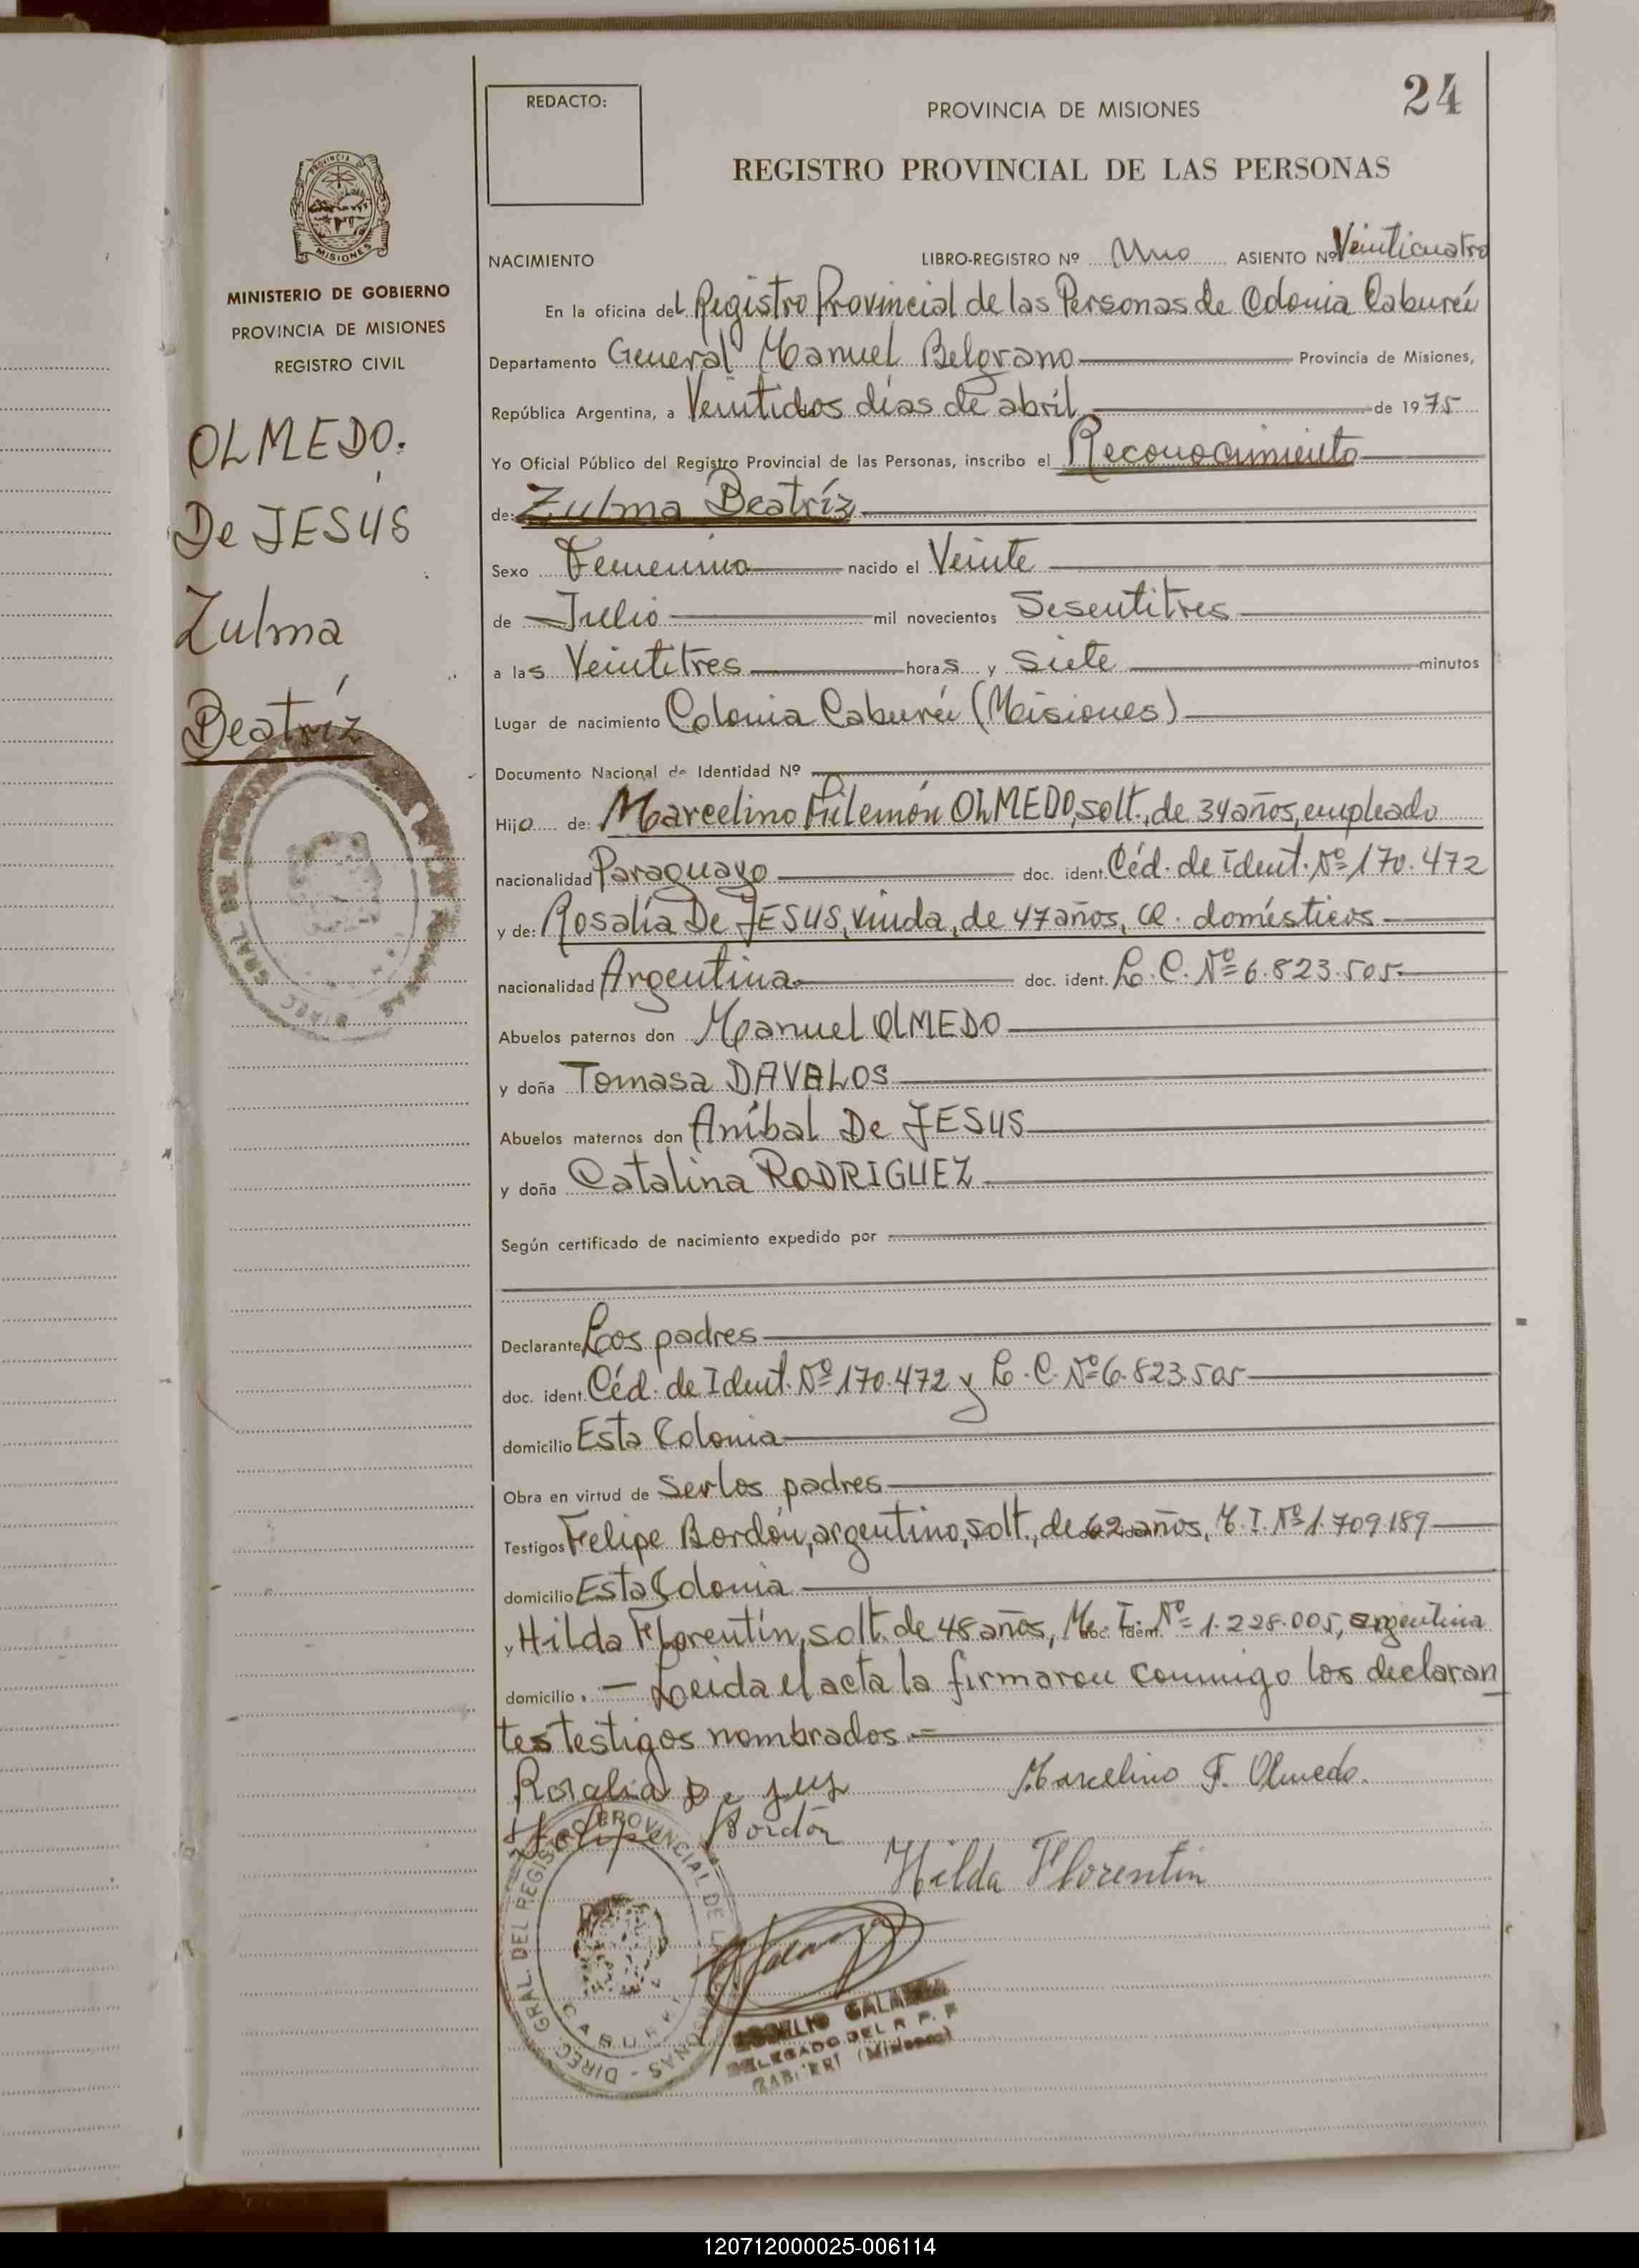 24
REDACTO:
PROVINCIA DE MISIONES
REGISTRO PROVINCIAL DE LAS PERSONAS
PROVINCIA DE
MISIONES
MINISTERIO DE GOBIERNO
PROVINCIA DE MISIONES
REGISTRO CIVIL
OLMEDO.
De JESUS
Zulma
Beatríz
NACIMIENTO LIBRO-REGISTRO Nº Uno ASIENTO Nº Veinticuatro
En la oficina del Registro Provincial de las Personas de Colonia Caburéi
Departamento General Manuel Belgrano Provincia de Misiones,
República Argentina, a Veintidos días de abril de 1975
Yo Oficial Público del Registro Provincial de las Personas, inscribo el Reconocimiento
de: Zulma Beatríz
Sexo Femenino nacido el Veinte
de Julio mil novecientos Sesentitres
a las Veintitres horas y siete minutos
Lugar de nacimiento Colonia Caburéi (Misiones)
Documento Nacional de Identidad Nº
Hijo de: Marcelino Filemón OLMEDO, solt., de 34 años, empleado
nacionalidad Paraguayo doc. ident. Céd. de Ident. Nº 170.472
y de: Rosalía De JESUS, viuda, de 47 años, q. domésticos
nacionalidad Argentina doc. ident. L.C. Nº 6.823.505.
Abuelos paternos don Manuel OLMEDO
y doña Tomasa DAVALOS
Abuelos maternos don Aníbal De JESUS
y doña Catalina RODRIGUEZ
Según certificado de nacimiento expedido por
Declarante Los padres
doc. ident. Céd. de Ident. Nº 170.472 y L.C. Nº 6.823.505
domicilio Esta Colonia
Obra en virtud de Ser los padres
Testigos Felipe Bordón, argentino, solt., de 62 años, M.I. Nº 1.709.189
domicilio Esta Colonia
y Hilda Florentín, solt. de 48 años, M. I. Nº 1.228.005, argentina
domicilio. — Leida el acta la firmaron conmigo los declaran
tes testigos nombrados.=
Rosalia De Jesus Marcelino F. Olmedo.
Felipe Bordón
Hilda Florentin
DIREC. GRAL. DEL REGISTRO PROVINCIAL DE LAS PERSONAS
DELEGADO DEL R. P. P.
(Misiones)
120712000025-006114